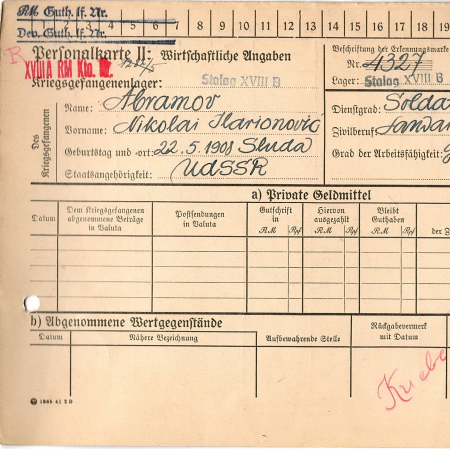 RM Guth. lf. Nr.
Dev. Guth. lf. Nr.
1 2 3 4 5 6 7 8 9 10 11 12 13 14 15 16 17 18 19
R
Personalkarte II: Wirtschaftliche Angaben
XVIII A RM Kto.
Kriegsgefangenenlager: Stalag XVIII B
Beschriftung der Erkennungsmarke
Nr. 4327
Lager: Stalag XVIII B
Des Kriegsgefangenen
Name: Abramov
Vorname: Nikolai Ilarionović
Geburtstag und -ort: 22.5.1901 Sluda
Staatsangehörigkeit: UdSSR
Dienstgrad: Solda
Zivilberuf:
Grad der Arbeitsfähigkeit:
a) Private Geldmittel
Datum
Dem Kriegsgefangenen abgenommene Beträge in Valuta
Postsendungen in Valuta
Gutschrift in
RM Rpf
Hiervon ausgezahlt
RM Rpf
Bleibt Guthaben
RM Rpf
der Z
b) Abgenommene Wertgegenstände
Datum
Nähere Bezeichnung
Aufbewahrende Stelle
Rückgabevermerk mit Datum
1866 41 2 D